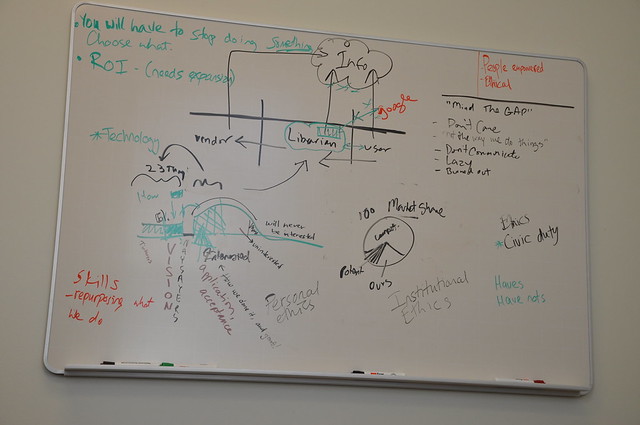 • You will have to stop doing something
Choose what.
• ROI - (needs expansion)
Info
google
People empowered
Ethical
"Mind The GAP"
- Don't Care
"not the way we do things"
- Don't Communicate
- Lazy
- Burned out
*Technology
vendor
Librarian
user
23 Things
How
will never
be interested
100 Market Share
compet.
Potent
ours
Ethics
*Civic duty
Haves
Have nots
VISION
NAYSAYERS
Interested
application,
acceptance
uninterested
Skills
- repurposing what
we do
Personal
ethics
Institutional
Ethics